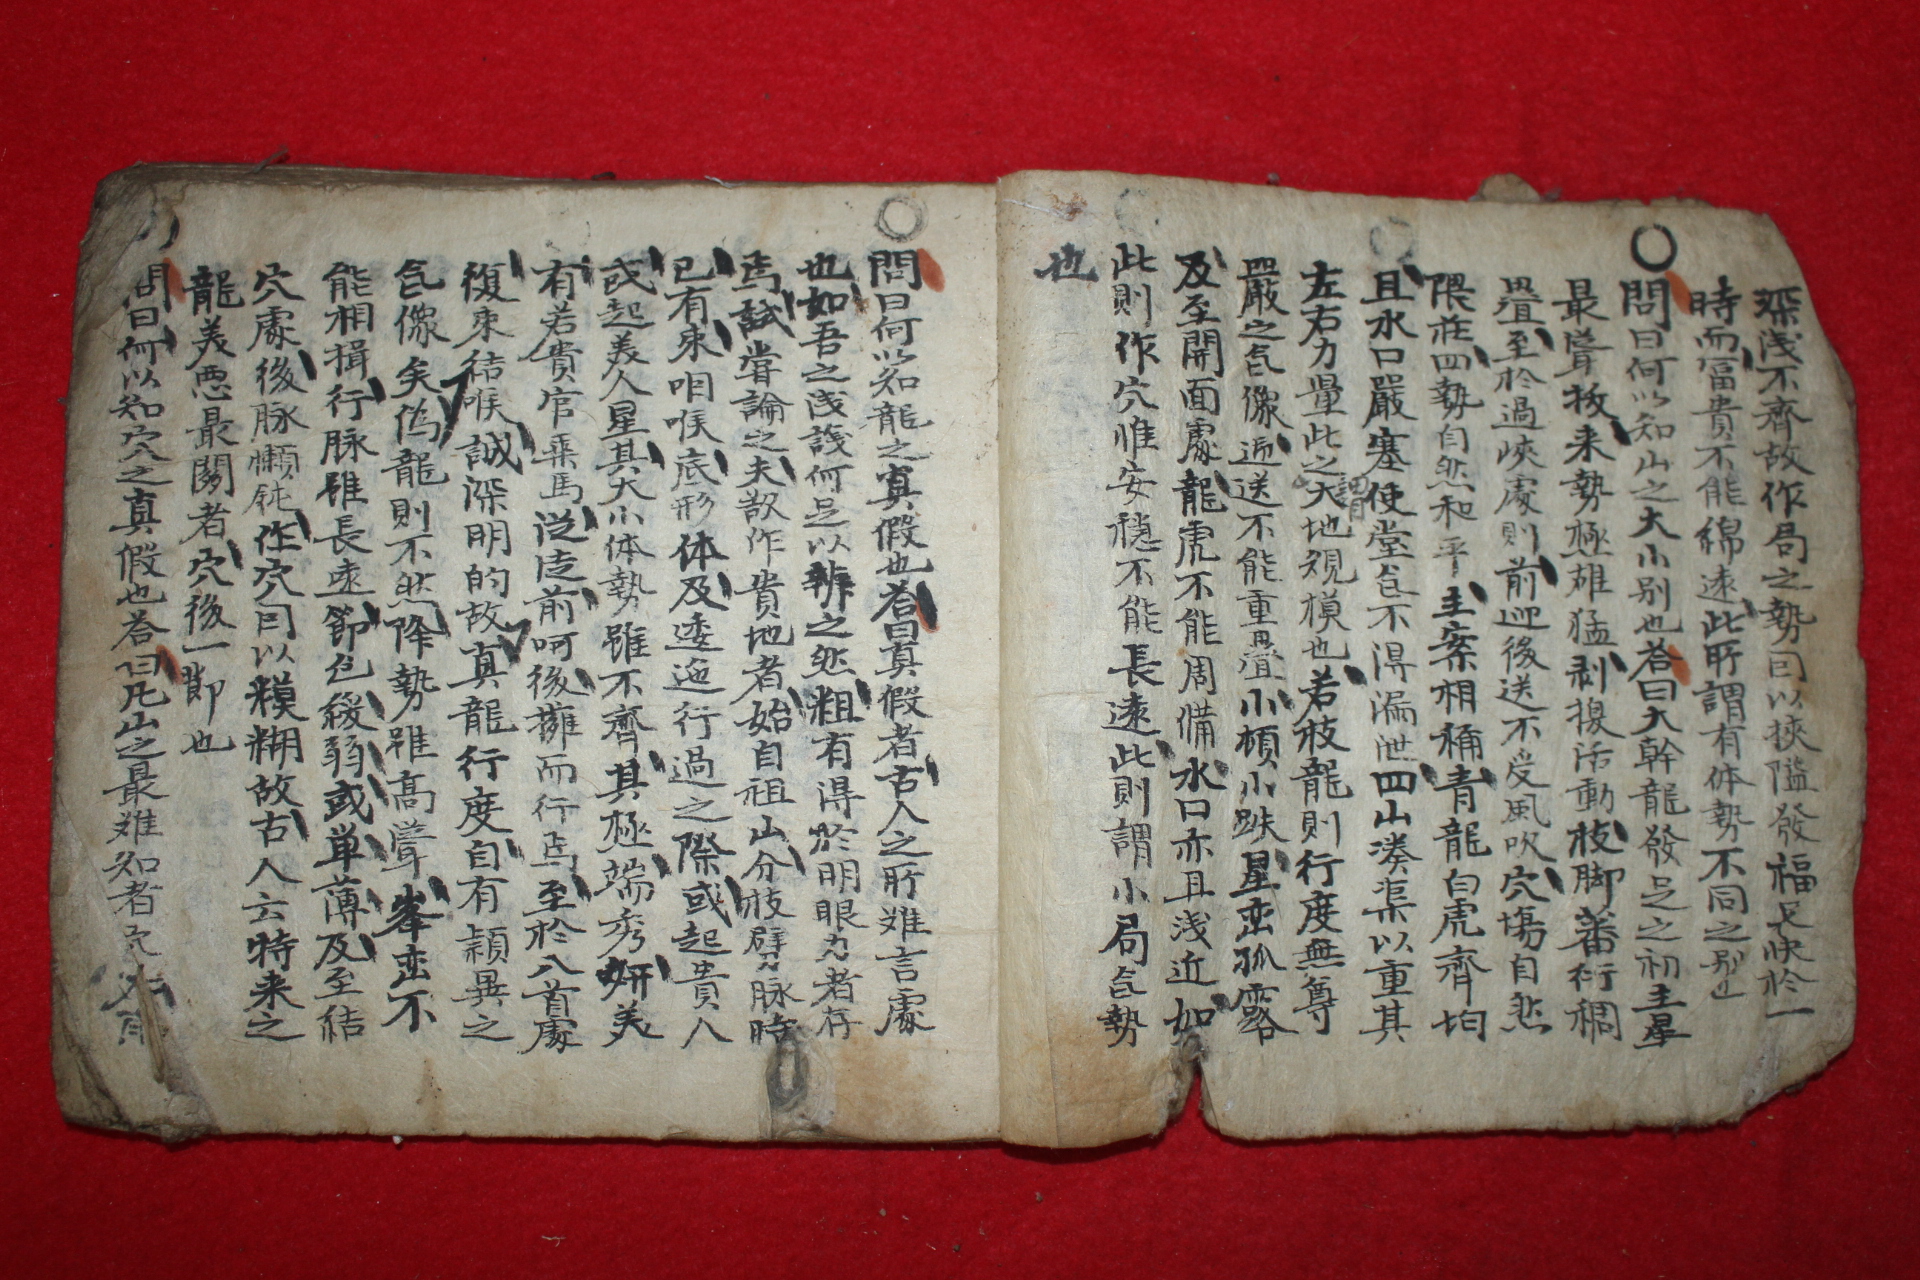 深浅不齊故作局之勢曰以挾隘發福長快於一
時而冨貴不能綿遠此所謂有体勢不同之别也
○
問曰何以知山之大小别也荅曰大幹龍發足之初主星
最聳拔来勢極雄猛剥換活動枝脚蕃衍稠
疊至於過峽處則前迎後送不受風吹穴塲自然
隈莊四勢自然和平主案相稱青龍白虎齊均
且水口嚴塞使堂气不淂漏泄四山湊渠以重其
左右力量此之謂大地䂓模也若枝龍則行度無尊
嚴之气像逓送不能重疊小頓小跌星峦孤露
及至開面處龍虎不能周備水口亦且浅近如
此則作穴惟安穏不能長遠此則謂小局气勢
也
○
問曰何以知龍之真假也荅曰真假者古人之所难言處
也如吾之浅識何足以辨之然粗有得於明眼力者存
焉試甞論之夫欲作貴地者始自祖山分枝劈脉時
已有束咽喉底形体及逶迤行過之際或起貴人
或起美人星其大小体勢雖不齊其極端秀姸美
有若貴官乗馬従徒前呵後擁而行焉至於入首處
復束結喉誠深明的故真龍行度自有頴異之
气像矣僞龍則不然降勢雖高聳峯峦不
能相揖行脉雖長遠節包緩弱或单薄及至結
穴處後脉懶鈍作穴囙以糢糊故古人云特来之
龍美悪最關者穴後一節也
問曰何以知穴之真假也荅曰凡山之最难知者穴